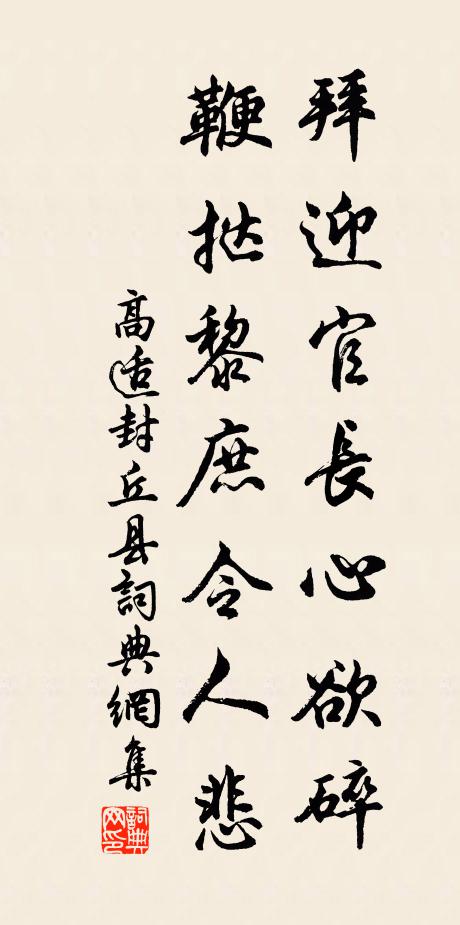 拜迎官長心欲碎
鞭挞黎庶令人悲
高适封丘县詞典網集
詞典网印